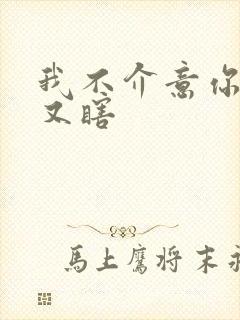 我不介意你
又瞎
馬上鷹将末